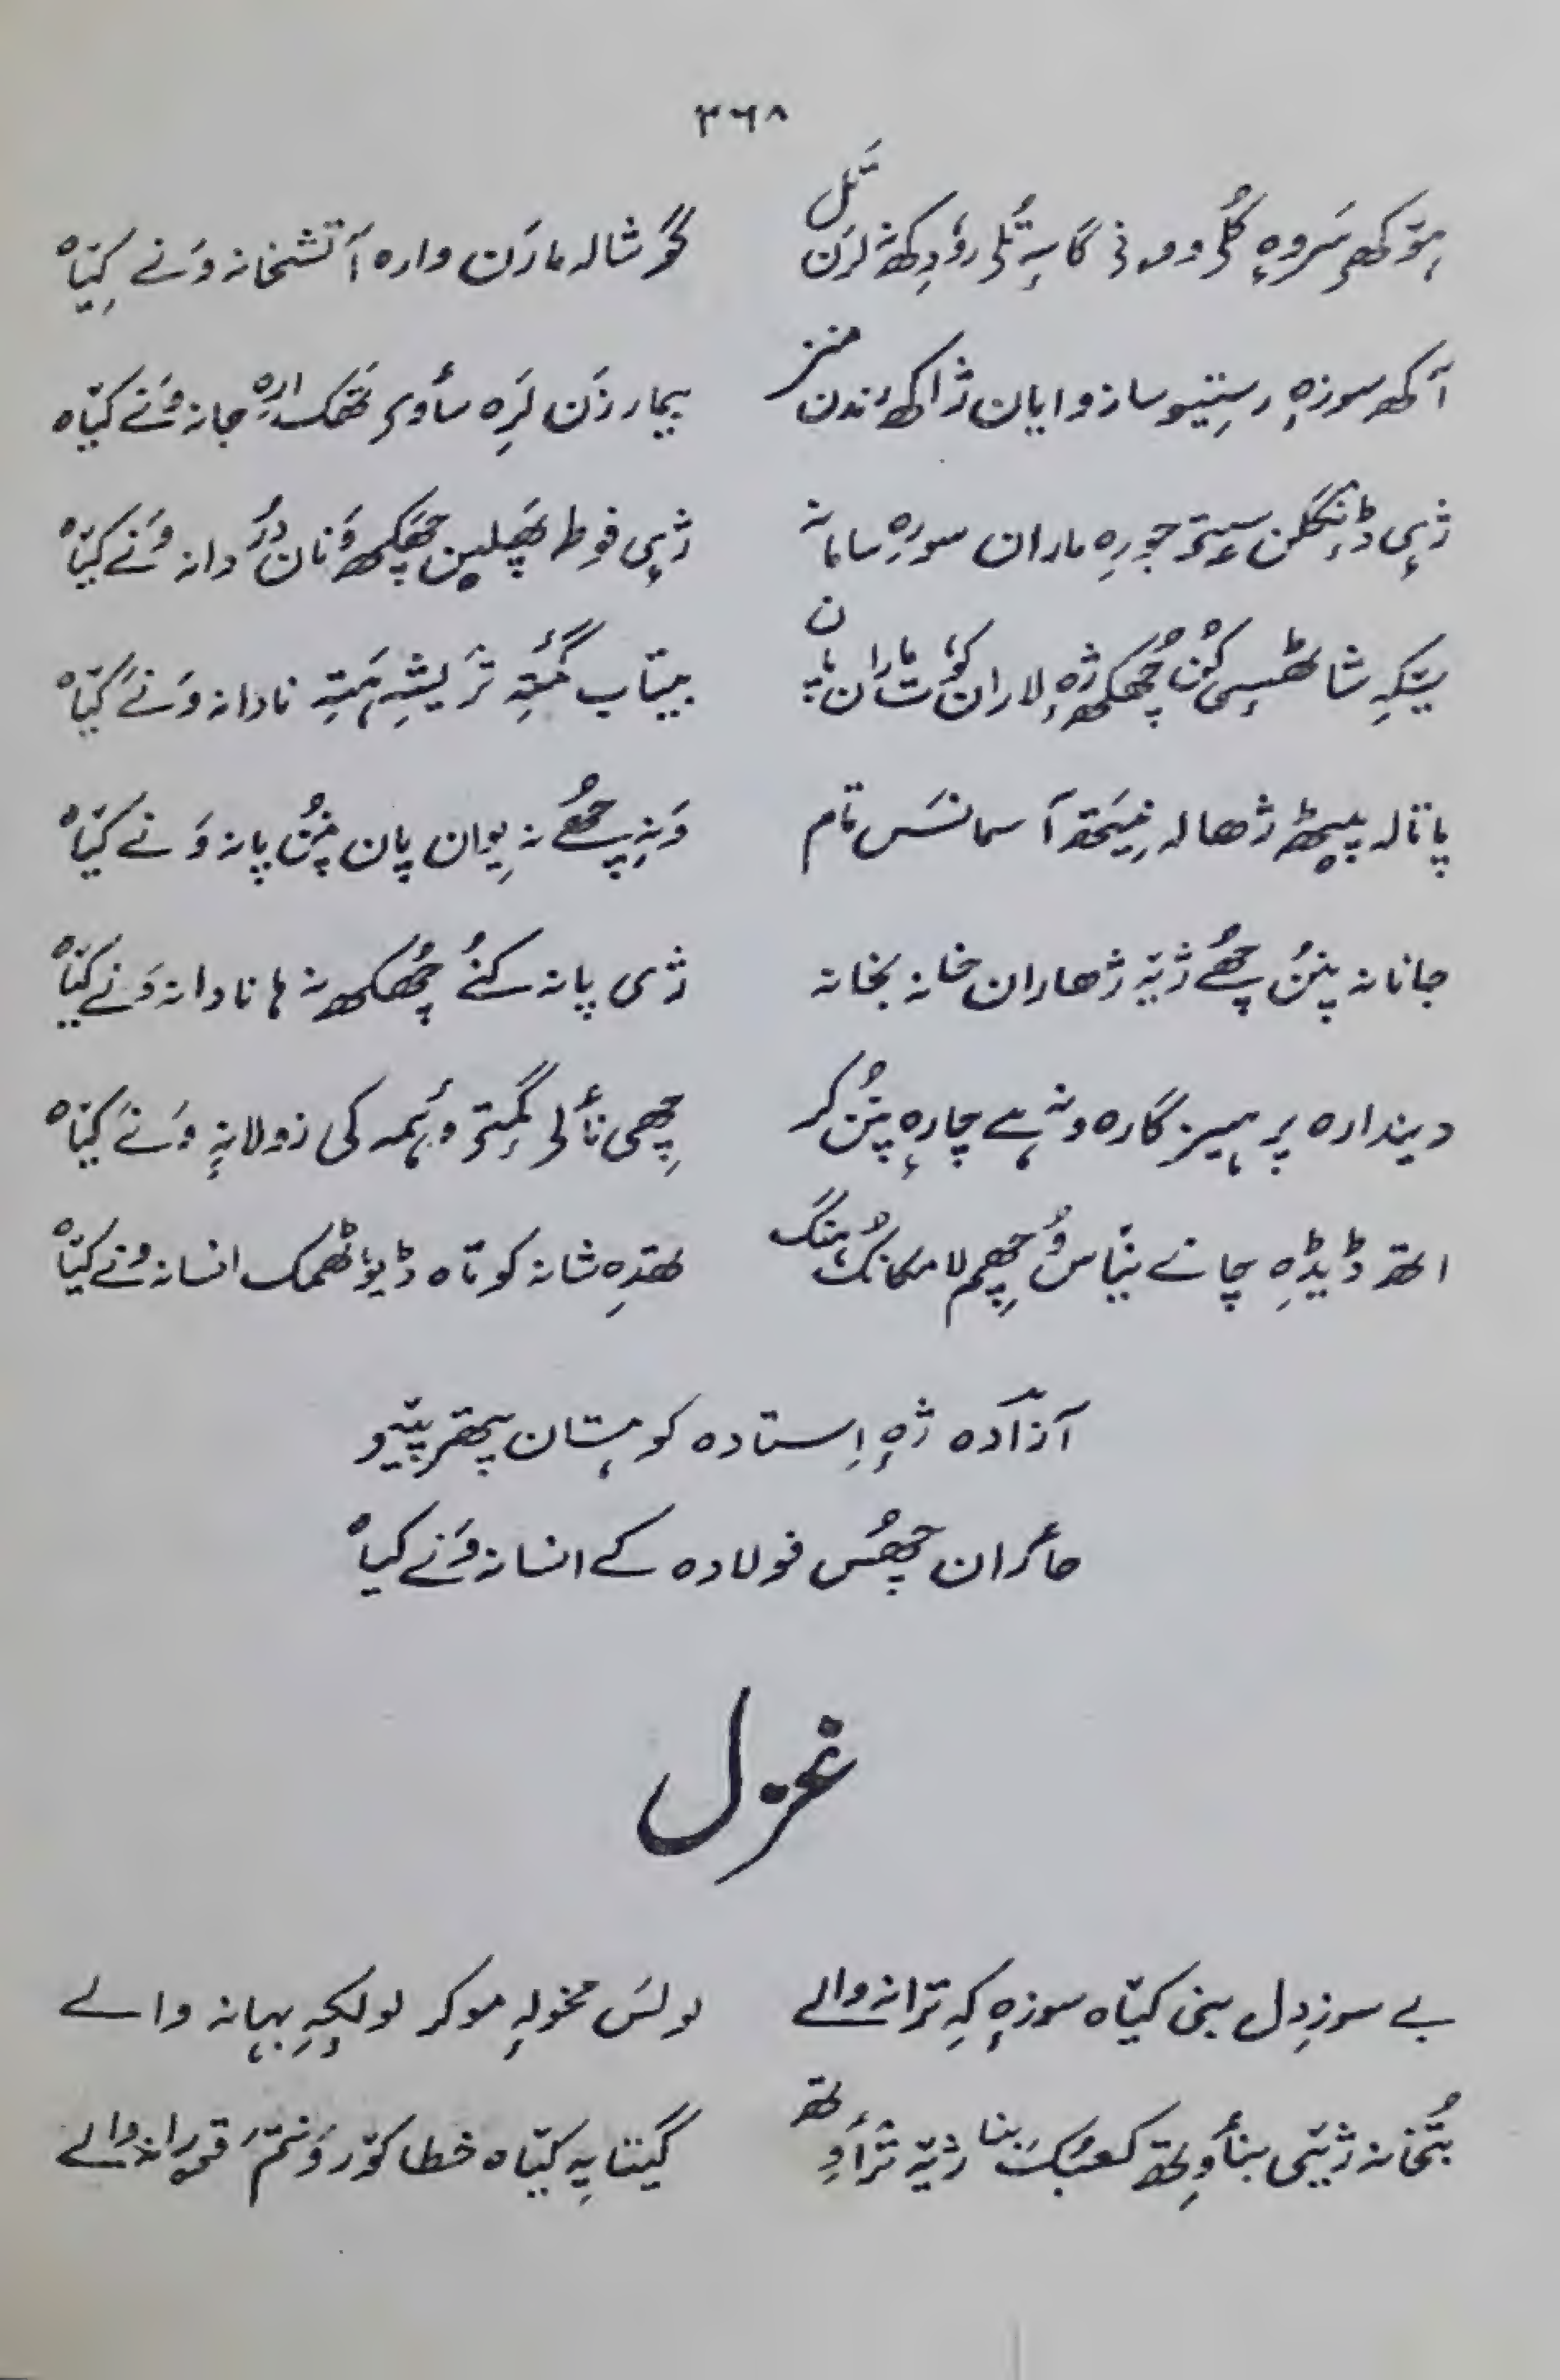 ٣٦٨
ہتھ کھ سروہ گلی وورنی گاسہٕ تُلی روٗدکھ نہٕ لرَن تَل گوشالہ مارَن وارہ آتشخانہ وَنے کیَتاہ
اَکھ سوزہٕ رستیو ساز و ایان ژاکھ رندن منز بیمار زَن لَرِہ سأوی تھَک ارہ جانہ وَنے کیتاہ
ژٕی ڈینگلن سیتۍ جورِہ ماران سورہ سامانہ ژٕی فوطہ پھَلین چھکھ وَنان دُردانہ وَنے کیتاہ
یتکہِ شاٹھسٕی کُن چھُکھ ژہٕ لاران کوٗت ماران پان بیتاب گمٔتِ تریشہِ ہَتِہ نادانہ وَنے کیتاہ
پاتالہ پیٹھ ژھالہ نِیتھ آسمانَس تام وَنہِ چھُے نہ یوان پان پنُن پانہ وَنے کیتاہ
جانانہ پنُن چھُے ژیتہ ژھاران خانہ بخانہ ژی پانہ کُنے چھُکھ نہ ہا نادانہ وَنے کیتاہ
دیندارہ پرہیزگارہ ونہ ہے چارہٕ پنُن کر چھِی نألۍ گمٕتۍ وہمہ کی زولانہٕ وَنے کیتاہ
اتھ ڈیڈِہ چانے نیتاس وُچھِم لامکانُک ہنگ تھدِہ شانہ کوتاہ ڈیوٗٹھمک انسانہ وَنے کیتاہ
آزادہ ژہٕ اِستادہ کوہستان پتھر پیتیو
حأران چھُس فولادہ کے انسانہ وَنے کیتاہ
غزل
بے سوزِ دل بنی کیتاہ سوزہٕ کہِ ترانہ والے لولَس مخولہٕ موکر لولچہِ بہانہ والے
بُتخانہ ژیتی بنأوِتھ کعبُک بنا ژیتہ ترٲوِتھ گیتایہِ کیتاہ خطا کوٚر وَنتمَ قرانہ والے